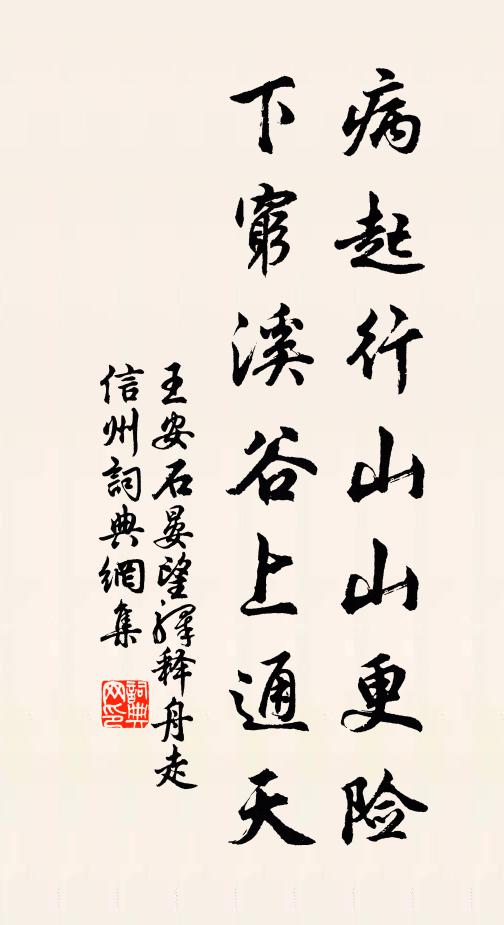 病起行山山更险
下窮溪谷上通天
王安石晏望驛释舟走
信州詞典網集
詞典
网印